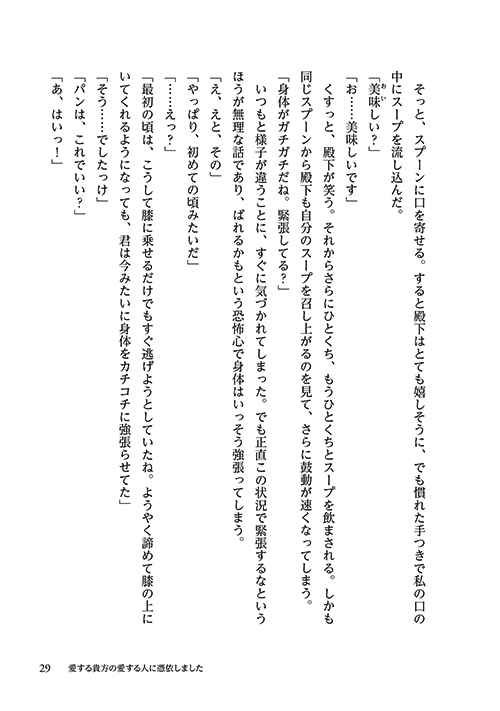 そっと、スプーンに口を寄せる。すると殿下はとても嬉しそうに、でも慣れた手つきで私の口の
中にスープを流し込んだ。
「美味しい？」
「お……美味しいです」
　くすっと、殿下が笑う。それからさらにひとくち、もうひとくちとスープを飲まされる。しかも
同じスプーンから殿下も自分のスープを召し上がるのを見て、さらに鼓動が速くなってしまう。
「身体がガチガチだね。緊張してる？」
　いつもと様子が違うことに、すぐに気づかれてしまった。でも正直この状況で緊張するなという
ほうが無理な話であり、ばれるかもという恐怖心で身体はいっそう強張ってしまう。
「え、えと、その」
「やっぱり、初めての頃みたいだ」
「……えっ？」
「最初の頃は、こうして膝に乗せるだけでもすぐ逃げようとしていたね。ようやく諦めて膝の上に
いてくれるようになっても、君は今みたいに身体をカチコチに強張らせてた」
「そう……でしたっけ」
「パンは、これでいい？」
「あ、はいっ！」
29　愛する貴方の愛する人に憑依しました